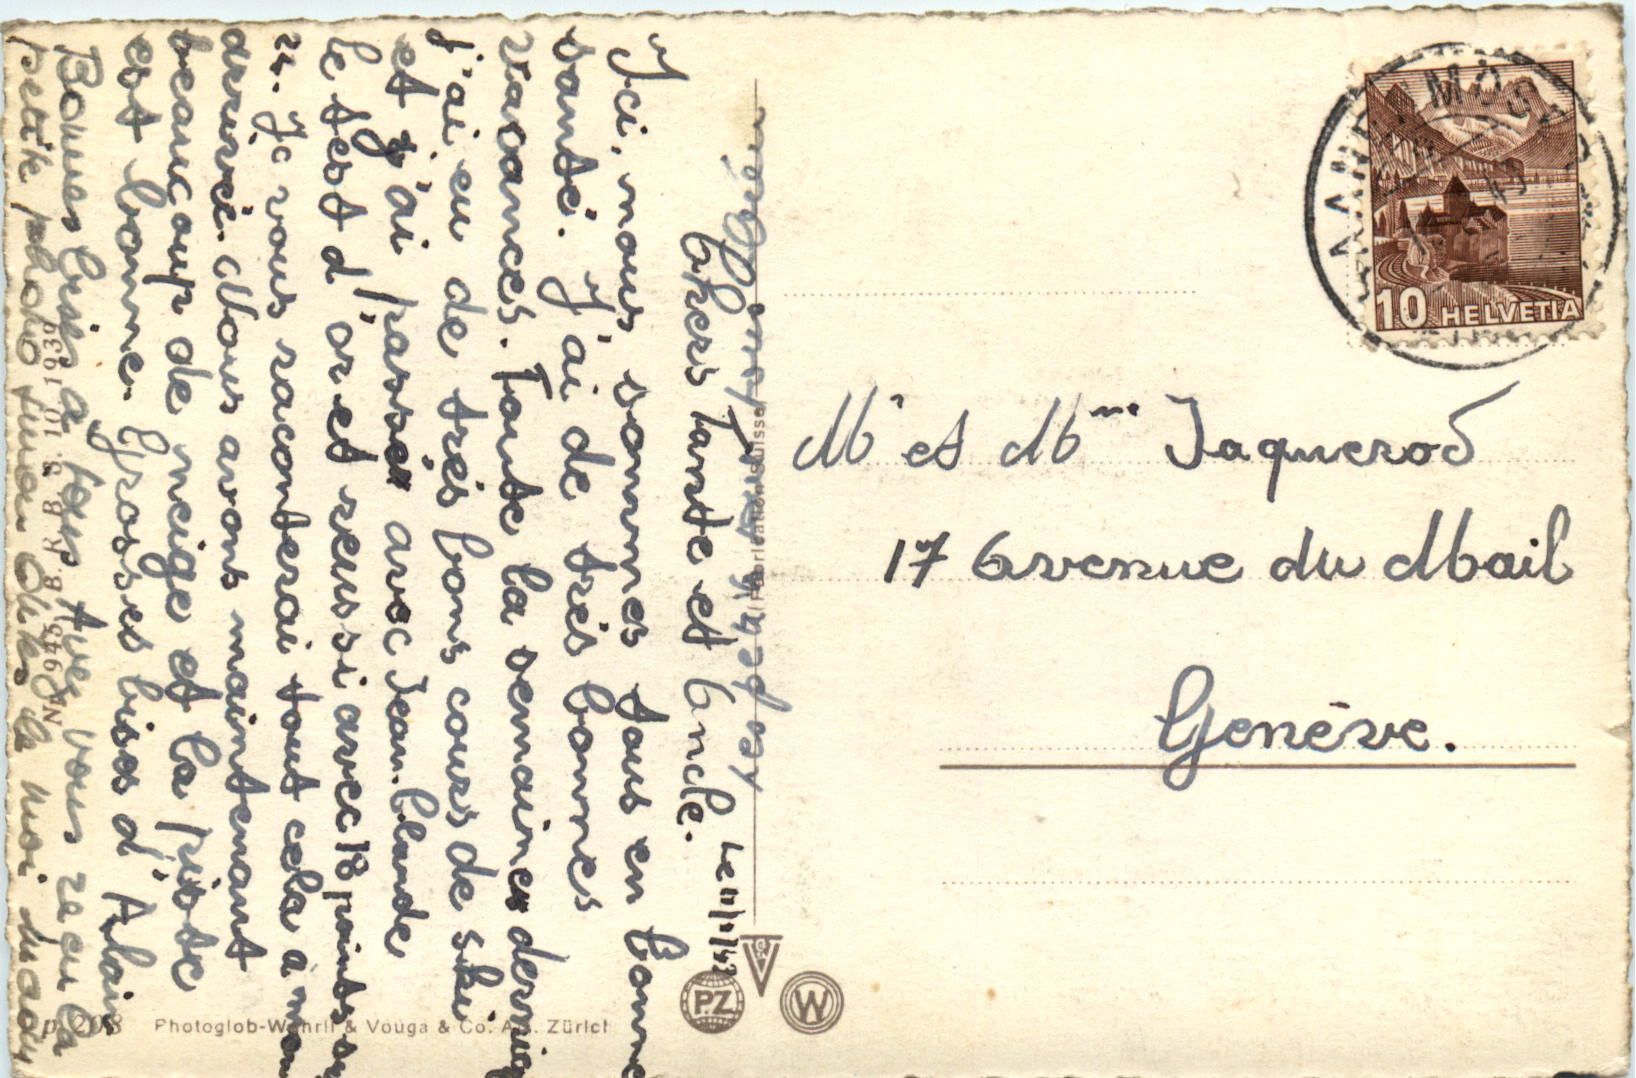 Le 11/1/43
Chers Tante et Oncle.
Ici, nous sommes tous en bonne
santé. J'ai de très bonnes
vacances. Toute la semaine dernière
j'ai eu de très bons cours de ski
et j'ai passer avec Jean-Claude
le test d'or et reussi avec 18 points sur
24. Je vous raconterai tout cela à mon
arrivée. Nous avons maintenant
beaucoup de neige et la piste
est bonne. Grosses bises d'Alain
Bonnes bises à tous
vous
petite photo
10 HELVETIA
Mr et Mme Jaquerod
17 Avenue du Mail
Genève.
No 9455 B.R.B. 8.10.1930
p. 208 Photoglob-Wehrli & Vouga & Co. A.G. Zürich
PZ
V & Co
W